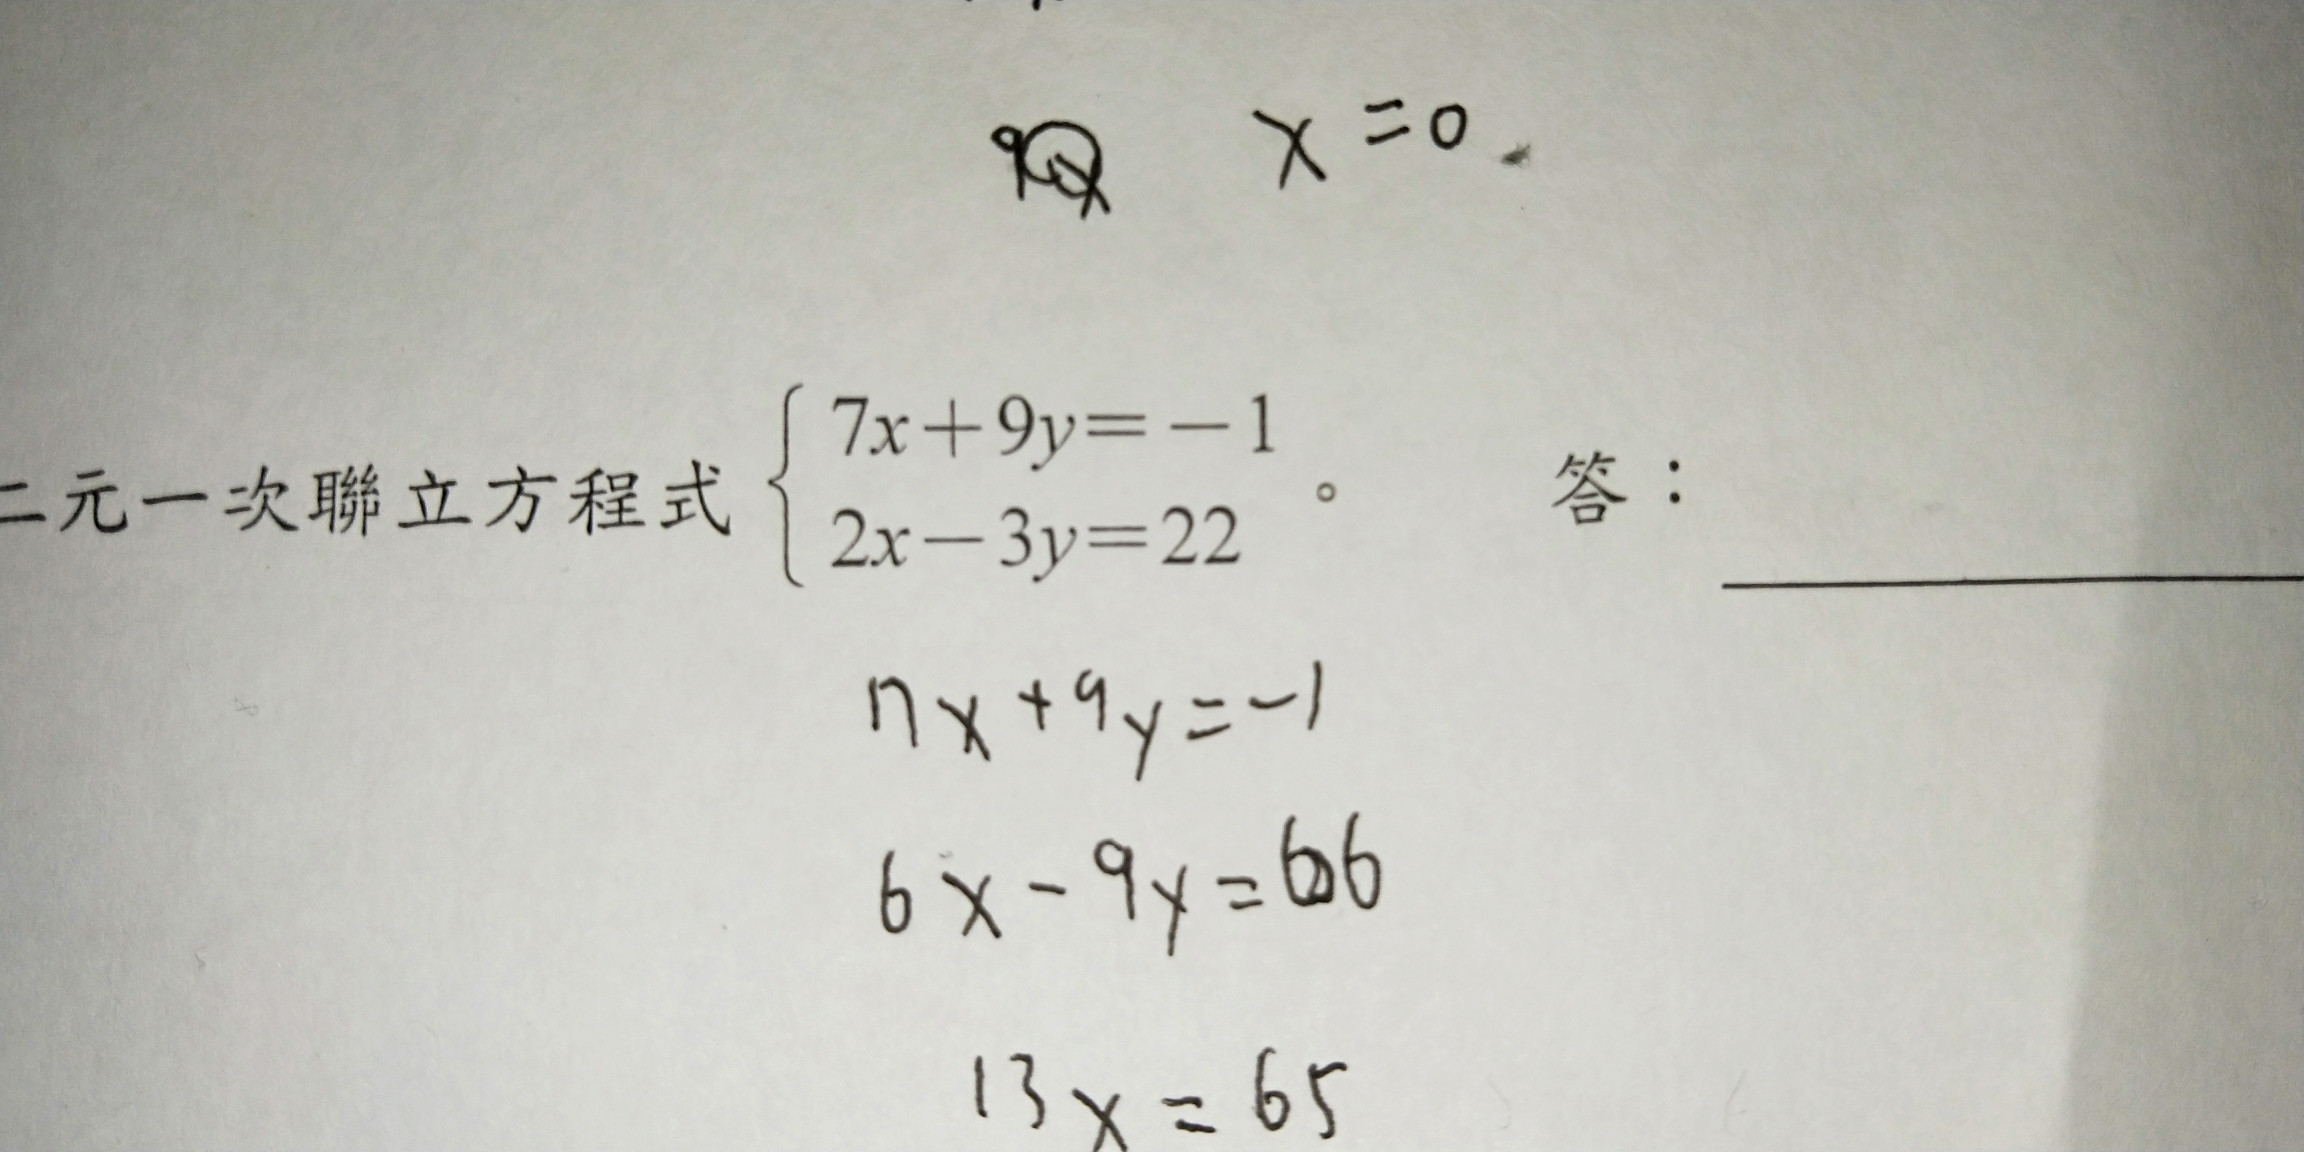 x=0
二元一次聯立方程式 { 7x+9y=-1
2x-3y=22 。 答：
7x+9y=-1
6x-9y=66
13x=65